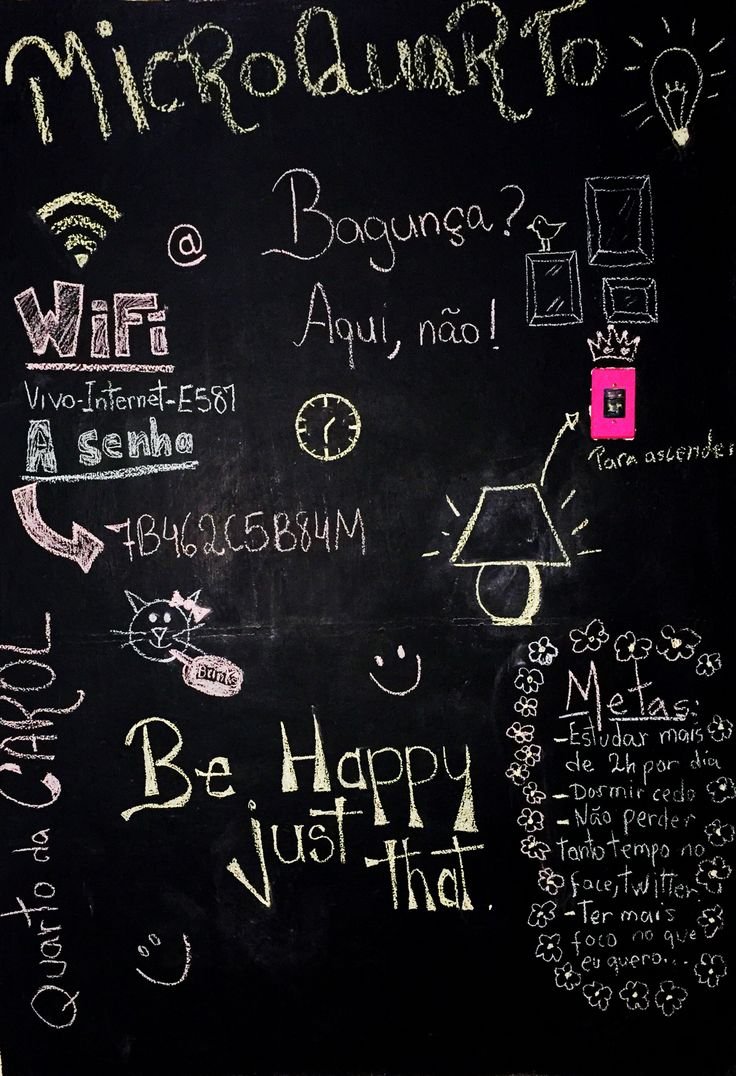 MicroQuarto
@
Bagunça?
Aqui, não!
WiFi
Vivo-Internet-E587
A senha
7B462C5B84M
Para ascender
Be Happy
just
that.
Quarto da CAROL
Metas:
-Estudar mais
de 2h por dia
- Dormir cedo
- Não perder
tanto tempo no
face, twitter
-Ter mais
foco no que
eu quero...